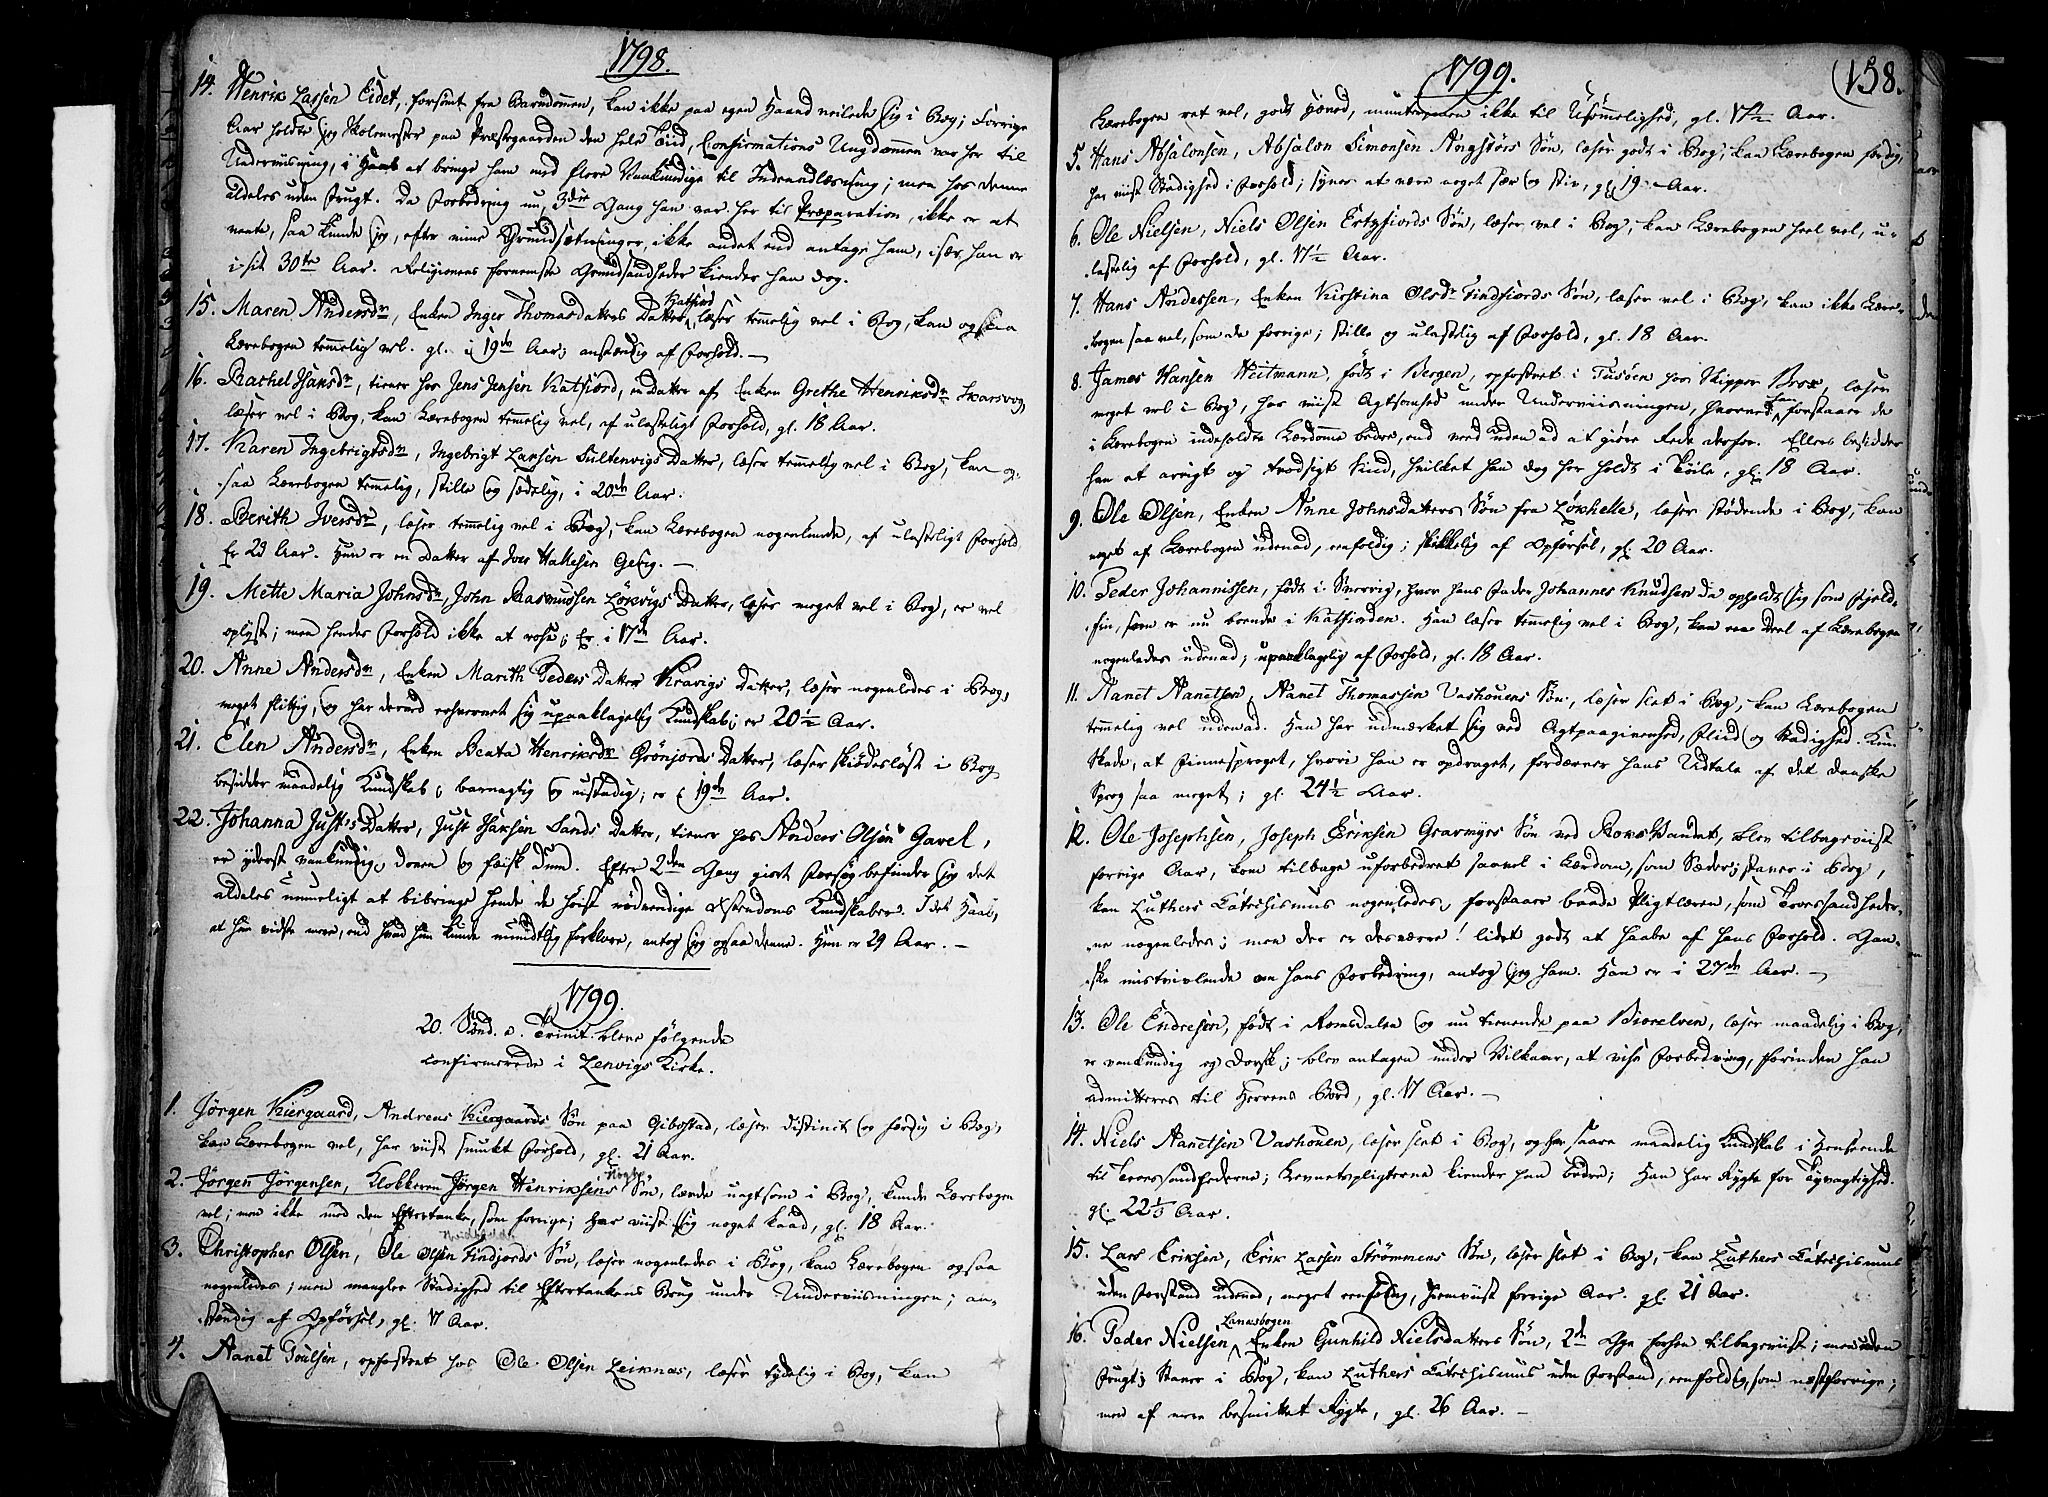 1798.
14. Henrik Larsen Eidet, forsømt fra Barndommen, kan ikke paa egen Haand veilede sig i Bog; Forrige
Aar holdte jeg Skolemester paa Præstegaarden den hele Tiid, Confirmations Ungdommen var her til
Underviisning, i Haab at bringe ham med flere Vankundige til Indenadlæsning; men hos denne
aldeles uden Frugt. Da Forbedring nu, 3die Gang han var her til Præparation, ikke er at
vente, saa kunde jeg, efter mine Grundsætninger, ikke andet end antage ham, især han er
i sit 30te Aar. Religionens fornemste Grundsandheder kiender han dog.
15. Maren Andersdr, Enken Inger Thomasdatters Datter Katfiord, læser temmelig vel i Bog, kan ogsaa
Lærebogen temmelig vel. gl. i 19de Aar; anstændig af Forhold. —
16. Rachel Hansdr, tiener hos Jens Jensen Katfiord, en Datter af Enken Grethe Henriksdr Skarsvog,
læser vel i Bog, kan Lærebogen temmelig vel, af ulasteligt Forhold, gl. 18 Aar.
17. Karen Ingebrigtsdr, Ingebrigt Larsen Sultenvigs Datter, læser temmelig vel i Bog, kan og-
saa Lærebogen temmelig, stille og sædelig, i 20de Aar.
18. Berith Iversdr, læser temmelig vel i Bog, kan Lærebogen nogenlunde, af ulasteligt Forhold
Er 23 Aar. Hun er en Datter af Iver Hallesen Gesvig. —
19. Mette Maria Johnsdr, John Rasmussen Løkvigs Datter, læser meget vel i Bog, er vel
oplyst; men hendes Forhold ikke at rose; Er i 17de Aar.
20. Anne Andersdr, Enken Marith Peders Datter Kravigs Datter, læser nogenledes i Bog,
meget flittig, og har derved erhvervet sig upaaklagelig Kundskab; er 20½ Aar.
21. Elen Andersdr, Enken Beata Henriksdr Grønjords Datter, læser skiødesløst i Bog
besidder maadelig Kundskab, barnagtig og ustadig; er i 19de Aar.
22. Johanna Just's Datter, Just Hansen Sands Datter, tiener hos Anders Olsen Gavel,
er yderst vankundig, doven og fæisk dum. Efter 2den Gang giort Forsøg befinder jeg det
aldeles umueligt at bibringe hende de høist nødvendige Christendoms Kundskaber. I det Haab,
at hun vidste mere, end hvad hun kunde mundtlig forklare, antog jeg ogsaa denne. Hun er 29 Aar. —
1799.
20. Sønd. p. Trinit. bleve følgende
confirmerede i Lenvigs Kirke.
1. Jørgen Kiergaard, Andreas Kiergaards Søn paa Gibostad, læser distinct og færdig i Bog,
kan Lærebogen vel, har viist smukt Forhold, gl. 21 Aar.
2. Jørgen Jørgensen, Klokkeren Jørgen Henriksens Søn, lærde uagtsom i Bog, kunde Lærebogen
vel; men ikke med den Eftertanke, som forrige; har viist sig noget kaad, gl. 18 Aar.
3. Christopher Olsen, Ole Olsen Findjords Søn, læser nogenledes i Bog, kan Lærebogen ogsaa
nogenledes; men mangler Stadighed til Eftertankens Brug under Underviisningen; an-
stændig af Opførsel, gl. 17 Aar.
4. Aanet Poulsen, opfostret hos Ole Olsen Leiknas, læser tydelig i Bog, kan
1799.
158.
Lærebogen ret vel, godt Hoved, ikke til Usømmelighed, gl. 17½ Aar.
5. Hans Absalonsen, Absalon Simonsen Angstørs Søn, læser godt i Bog, kan Lærebogen færdig,
har viist Stadighed i Forhold; synes at være noget sær og stiv, gl. 19 Aar.
6. Ole Nielsen, Niels Olsen Ertzfiords Søn, læser vel i Bog, kan Lærebogen heel vel, u-
lastelig af Forhold, gl. 17½ Aar.
7. Hans Andersen, Enken Kirstina Olsdr Findfiords Søn, læser vel i Bog, kan ikke Lære-
bogen saa vel, som de forrige; stille og ulastelig af Forhold, gl. 18 Aar.
8. James Hansen Heitmann, født i Bergen, opfostret i Tussøen hos Skipper Brox, læser
meget vel i Bog, har viist Agtsomhed under Underviisningen, hvorved han forstaaer de
i Lærebogen indeholdte Lærdomme bedre, end ved uden ad at giøre Rede derfor. Ellers besidder
han et arrigt og trodsigt Sind, hvilket han dog her holdt i Tøile, gl. 18 Aar.
9. Ole Olsen, Enken Anne Johnsdatters Søn fra Løxhelle, læser stødende i Bog, kan
noget af Lærebogen udenad, eenfoldig; skikkelig af Opførsel, gl. 20 Aar.
10. Peder Johannissen, født i Snorvig, hvor hans Fader Johannes Knudsen da opholdt sig som Fjeld-
fin, som er nu boende i Katfiorden. Han læser temmelig vel i Bog, kan een Deel af Lærebogen
nogenledes udenad; upaaklagelig af Forhold, gl. 18 Aar.
11. Aanet Aanetsen, Aanet Thomassen Vashouens Søn, læser slet i Bog, kan Lærebogen
temmelig vel udenad. Han har udmærket sig ved Agtpaagivenhed, Fliid og Stadighed. Kun
Skade, at Finnesproget, hvori han er opdraget, fordærver hans Udtale af det danske
Sprog saa meget; gl. 24½ Aar.
12. Ole Josephsen, Joseph Eriksen Grasmyrs Søn ved Roxs Vandet, blev tilbageviist
forrige Aar, kom tilbage uforbedret saavel i Lærdom, som Sæder; staver i Bog,
kan Luthers Catechismus nogenledes, forstaaer baade Pligtlæren, som Troessandheder-
ne nogenledes; men der er desværre! lidet godt at haabe af hans Forhold. Gan-
ske mistvivlende om hans Forbedring, antog jeg ham. Han er i 27de Aar. —
13. Ole Endresen, født i Romsdalen og nu tienende paa Biorelven, læser maadelig i Bog,
er vankundig og dorsk; blev antagen under Vilkaar, at vise Forbedring, forinden han
admitteres til Herrens Bord, gl. 17 Aar. —
14. Niels Aanetsen Vashouen, læser slet i Bog, og har saare maadelig Kundskab i Henseende
til Troessandhederne; Levnetspligterne kiender han bedre; Han har Rygte for Tyvagtighed.
gl. 22⅓ Aar.
15. Lars Eriksen, Erik Larsen Strømmens Søn, læser slet i Bog, kan Luthers Catechismus
uden Forstand udenad, meget eenfoldig, hiemviist forrige Aar. gl. 21 Aar.
16. Peder Nielsen Lanasbogen, Enken Gunhild Nielsdatters Søn, 2de Gge forhen tilbageviist; men uden
Frugt; Staver i Bog, kan Luthers Catechismus uden Forstand, eenfoldig, som næstforrige;
men af mere besmittet Rygte, gl. 26 Aar. —